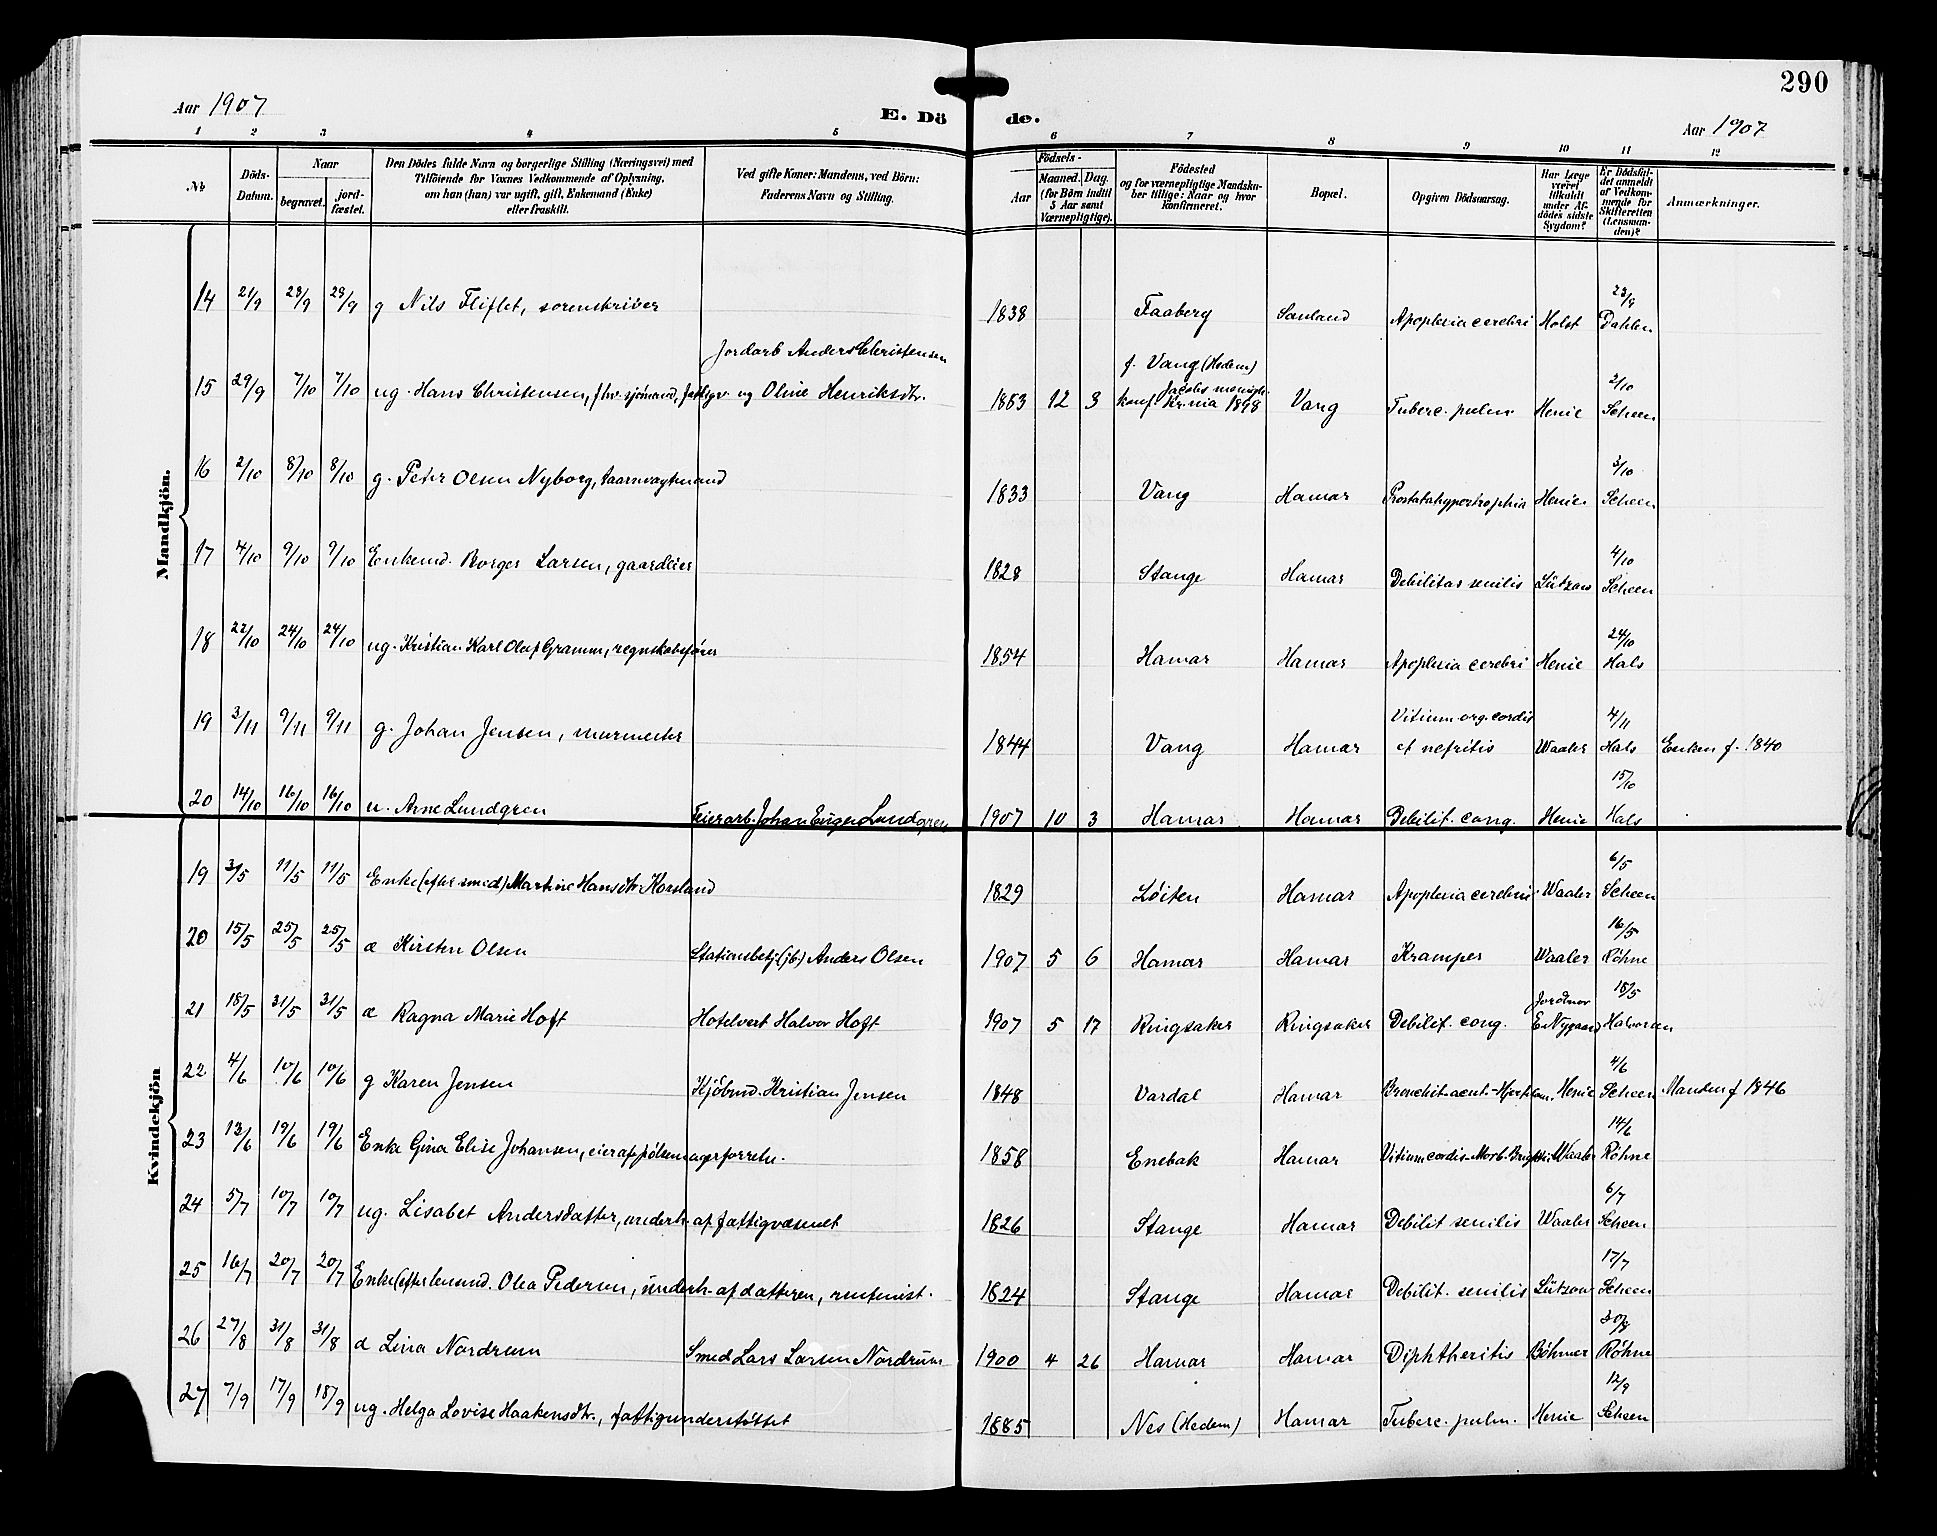 290
Aar 1907
E. Dö de.
Aar 1907
1 2 3 4 5 6 7 8 9 10 11 12
No
Döds-Datum.
Naar
begravet.
jord-fæstet.
Den Dödes fulde Navn og borgerlige Stilling (Næringsvei) med
Tilföiende for Voxnes Vedkommende af Oplysning,
om han (hun) var ugift, gift, Enkemand (Enke)
eller fraskilt.
Ved gifte Koner: Mandens, ved Börn:
Faderens Navn og Stilling.
Födsels-
Aar
Maaned. Dag.
(for Börn indtil
5 Aar samt
Værnepligtige).
Födested
og for værnepligtige Mandska-
ber tillige: Naar og hvor
konfirmeret.
Bopæl.
Opgiven Dödsaarsag.
Har Læge
været
tilkaldt
under Af-
dödes sidste
Sygdom?
Er Dödsfal-
det anmeldt
af Vedkom-
mende for
Skifteretten
(Lensman-
den)?
Anmærkninger.
Mandkjön.
14 21/9 28/9 28/9 g Nils Fliflet, sorenskriver 1838 Faaberg Sauland Apoplexia cerebri Holst 23/9 Dahlen
15 29/9 7/10 7/10 ug. Hans Christensen, fhv. sjömand, fattigv. Jordarb Anders Christensen og Oline Henriksdtr. 1883 12 3 f. Vang (Hedem) konf. Jacobs menigh. Kr.nia 1898 Vang Tuberc. pulm. Henie 2/10 Scheen
16 2/10 8/10 8/10 g. Peter Olsen Nyborg, taarnvagtmand 1833 Vang Hamar Prostatahypertrophia Henie 3/10 Scheen
17 4/10 9/10 9/10 Enkemd. Borger Larsen, gaardeier 1828 Stange Hamar Debilitas senilis Lützow 4/10 Scheen
18 22/10 24/10 24/10 ug. Kristian Karl Olaf Gramm, regnskabsfører 1854 Hamar Hamar Apoplexia cerebri Henie 24/10 Hals
19 3/11 9/11 9/11 g. Johan Jensen, murmester 1844 Vang Hamar Vitium org. cordis et nefritis Waaler 4/11 Hals Enken f. 1840
20 14/10 16/10 16/10 u. Arne Lundgren Feierarb. Johan Eugen Lundgren 1907 10 3 Hamar Hamar Debilit. cong. Henie 15/10 Hals
Kvindekjön
19 3/5 11/5 11/5 Enke (efter smed) Martine Hansdtr Korsland 1829 Løiten Hamar Apoplexia cerebri Waaler 6/5 Scheen
20 15/5 25/5 25/5 d Kirsten Olsen Stationsbetj. (jb) Anders Olsen 1907 5 6 Hamar Hamar Kramper Waaler 16/5 Röhne
21 18/5 31/5 31/5 d Ragna Marie Hoft Hotelvert Halvor Hoft 1907 5 17 Ringsaker Ringsaker Debilit. cong. Jordmor E. Nygaard 18/5 Halvorsen
22 4/6 10/6 10/6 g Karen Jensen Kjöbmd. Kristian Jensen 1848 Vardal Hamar Bronchit. acut. - Hjertelam. Henie 4/6 Scheen Manden f 1846
23 13/6 19/6 19/6 Enke Gina Elise Johansen, eier af pølsemagerforretn. 1858 Enebak Hamar Vitium cordis - Morb. Brightii Waaler 14/6 Röhne
24 5/7 10/7 10/7 ug. Lisabet Andersdatter, underh. af fattigvæsenet 1826 Stange Hamar Debilit senilis Waaler 6/7 Scheen
25 16/7 20/7 20/7 Enke (efter lensmd. Olea Pedersen, underh. af datteren, rentenist. 1824 Stange Hamar Debilit. senilis Lützow 17/7 Scheen
26 27/8 31/8 31/8 d Lina Nordrum Smed Lars Larsen Nordrum 1900 4 26 Hamar Hamar Diphtheritis Böhmer 30/8 Röhne
27 7/9 17/9 18/9 ug. Helga Lovise Haakensdtr., fattigunderstøttet 1885 Nes (Hedem) Hamar Tuberc. pulm. Henie 12/9 Scheen